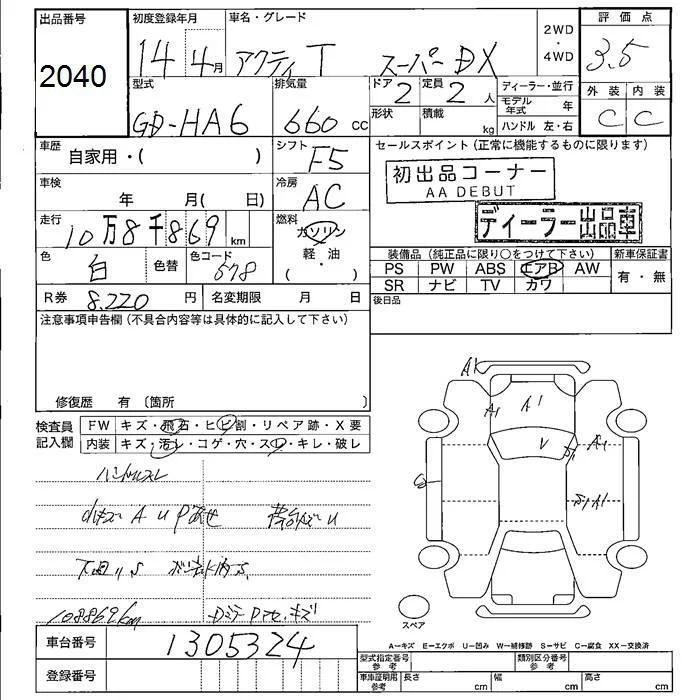 出品番号 初度登録年月 車名・グレード 2WD ・ 4WD 評価点
2040 14 4月 アクティ T スーパーDX 3.5
型式 排気量 ドア 2 定員 2 人 ディーラー・並行 外装 内装
GD-HA6 660 cc 形状 積載 kg モデル年式 年 C C
ハンドル 左・右
車歴 自家用・( ) シフト F5 セールスポイント(正常に機能するものに限ります)
初出品コーナー
AA DEBUT
車検 年 月( 日) 冷房 AC
ディーラー出品車
走行 10万8千869 km 燃料 ガソリン
軽・油
・
( )
色 白 色替 色コード 578
装備品(純正品に限り○をつけて下さい) 新車保証書
PS PW ABS エアB AW 有・無
SR ナビ TV カワ
R券 8.220 円 名変期限 月 日 後日品
注意事項申告欄(不具合内容等は具体的に記入して下さい)
修復歴 有 〔箇所 〕
検査員記入欄 FW キズ・飛石・ヒビ割・リペア跡・X要
内装 キズ・汚レ・コゲ・穴・スレ・キレ・破レ
ハンドルスレ
A U P
下回りS
108869km Dミラー P キズ
A1
A1 A1
U A1
A1
スペア
A−キズ E−エクボ U−凹み W−補修跡 S−サビ C−腐食 XX−交換済
車台番号 1305324
登録番号
型式指定番号 参考 類別区分番号 参考
車庫証明用 参考 長さ cm 幅 cm 高さ cm